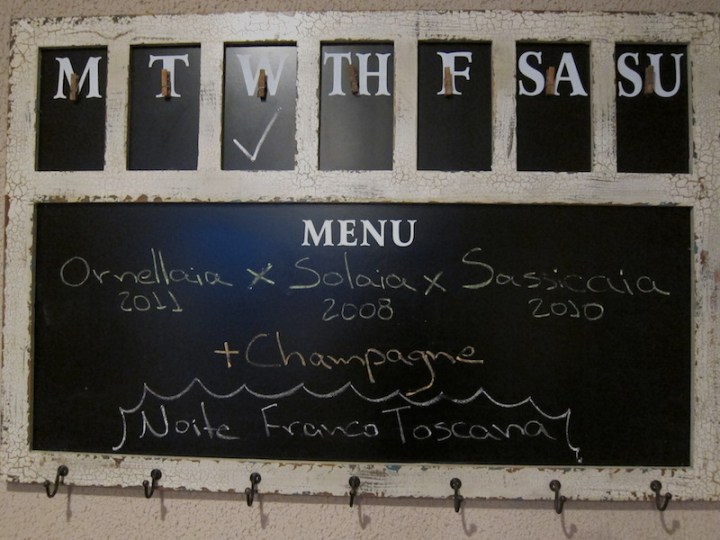 M T W TH F SA SU
MENU
Ornellaia x Solaia x Sassicaia
2011 2008 2010
+ Champagne
Noite Franco Toscana